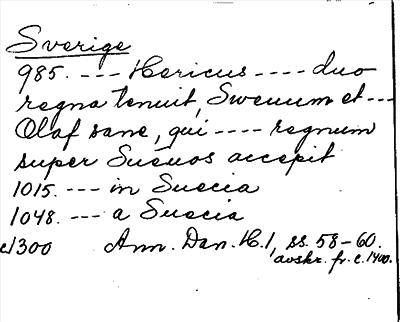 Sverige
985. --- Hericus ---- duo
regna tenuit, Sweuum et ---
Olaf sane, qui ---- regnum
super Sueuos accepit
1015. --- in Suecia
1048. --- a Suecia
c1300 Ann. Dan. H. 1, ss. 58-60.
avskr. fr. c. 1400.